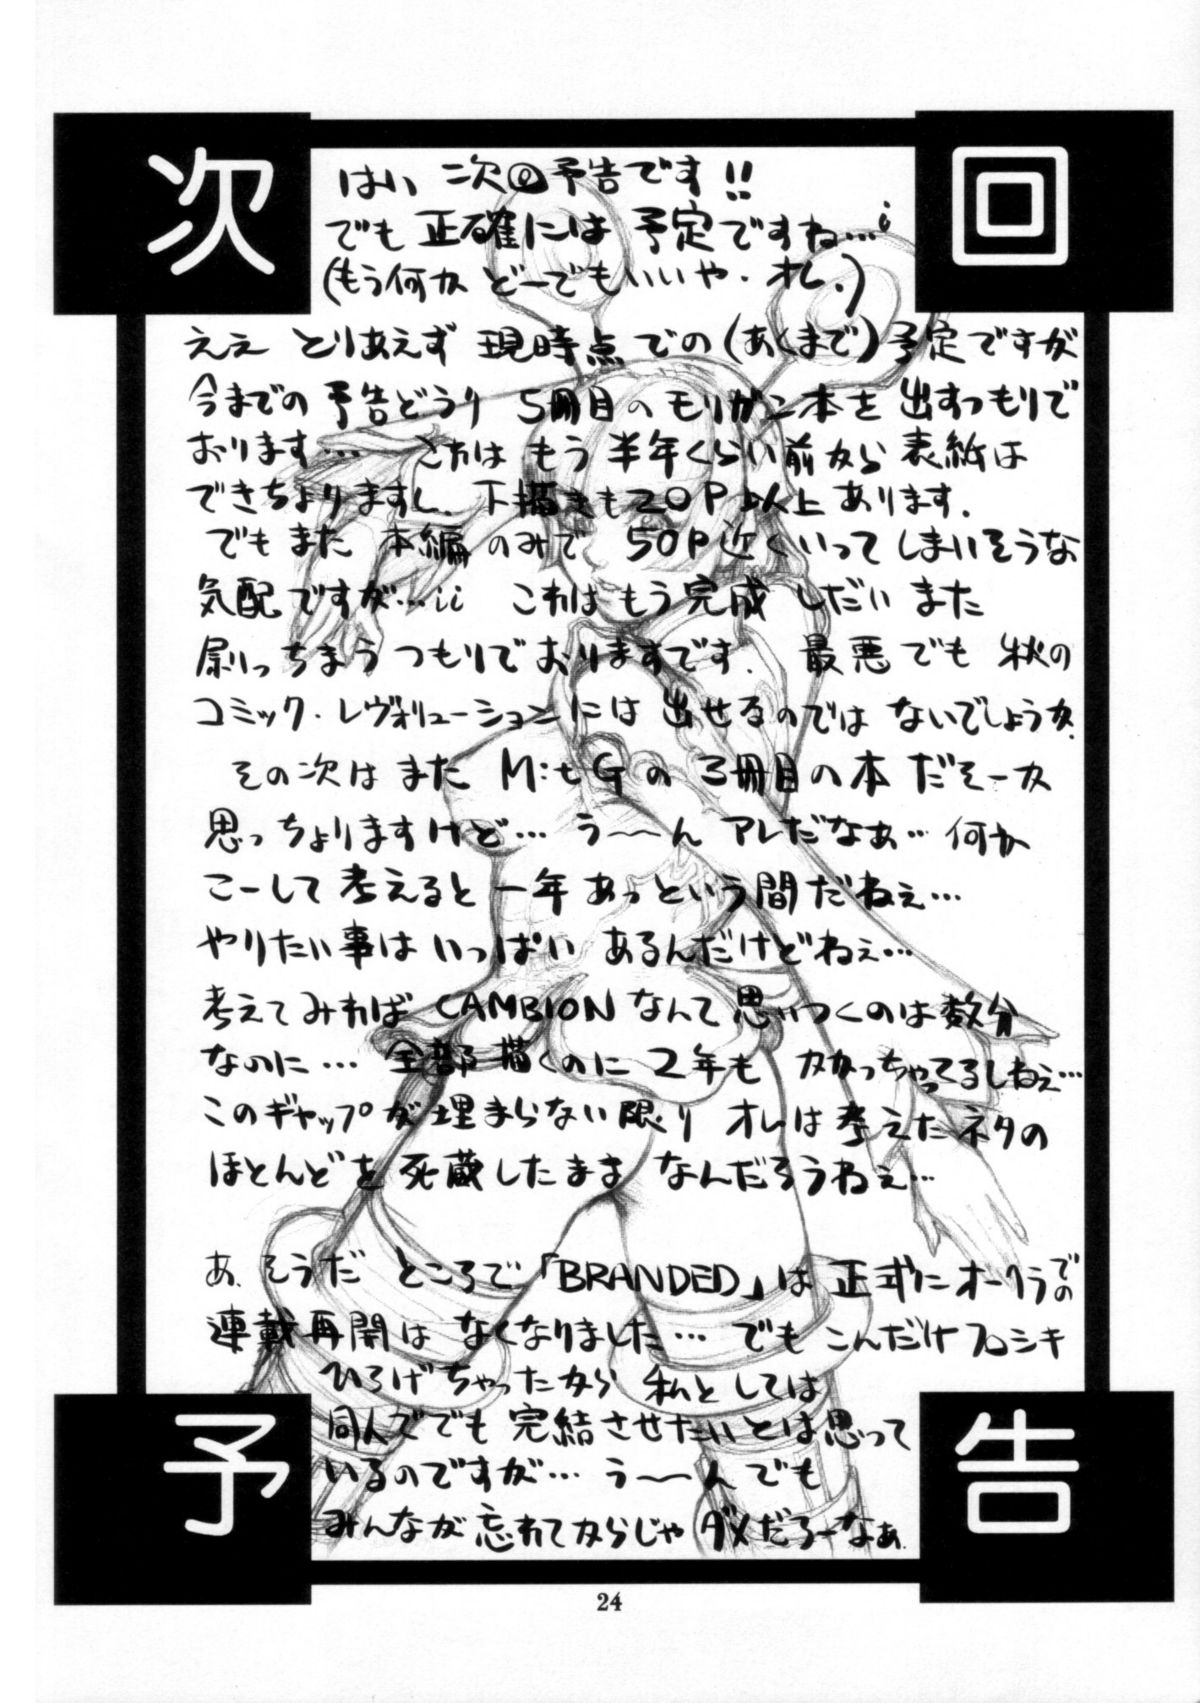 次回
はい 次の予告です!!
でも 正確には 予定ですね…
(もう何か どーでもいいや・オレ。)
ええ とりあえず 現時点での(あくまで)予定ですが
今までの 予告どうり 5冊目のモリガン本を 出すつもりで
おります… これは もう 半年くらい前から 表紙は
できちょりますし、下描きも20P以上あります。
でもまた 本編のみで 50P近くいってしまいそうな
気配ですが…ii これはもう完成 しだい また
刷っちまうつもりでおりますです。 最悪でも 秋の
コミック・レヴォリューションには 出せるのでは ないでしょうか。
その次は また M:tGの 3冊目の本 だそーか
思っちょりますけど… う〜〜ん アレだなぁ… 何か
こーして 考えると 一年 あっという間だねぇ…
やりたい事は いっぱい あるんだけどねぇ…
考えてみれば CAMBIONなんて 思いつくのは 数分
なのに… 全部 描くのに 2年も かかっちゃってるしねぇ…
このギャップが埋まらない限り オレは考えたネタの
ほとんどを 死蔵したまま なんだろうねぇ…
あ、そうだ ところで 「BRANDED」は 正式に オークラでの
連載再開は なくなりました… でも こんだけフロシキ
ひろげちゃったから 私としては
同人ででも 完結させたいとは思って
いるのですが… う〜〜んでも
みんなが 忘れてからじゃ ダメだろーなぁ。
予告
24